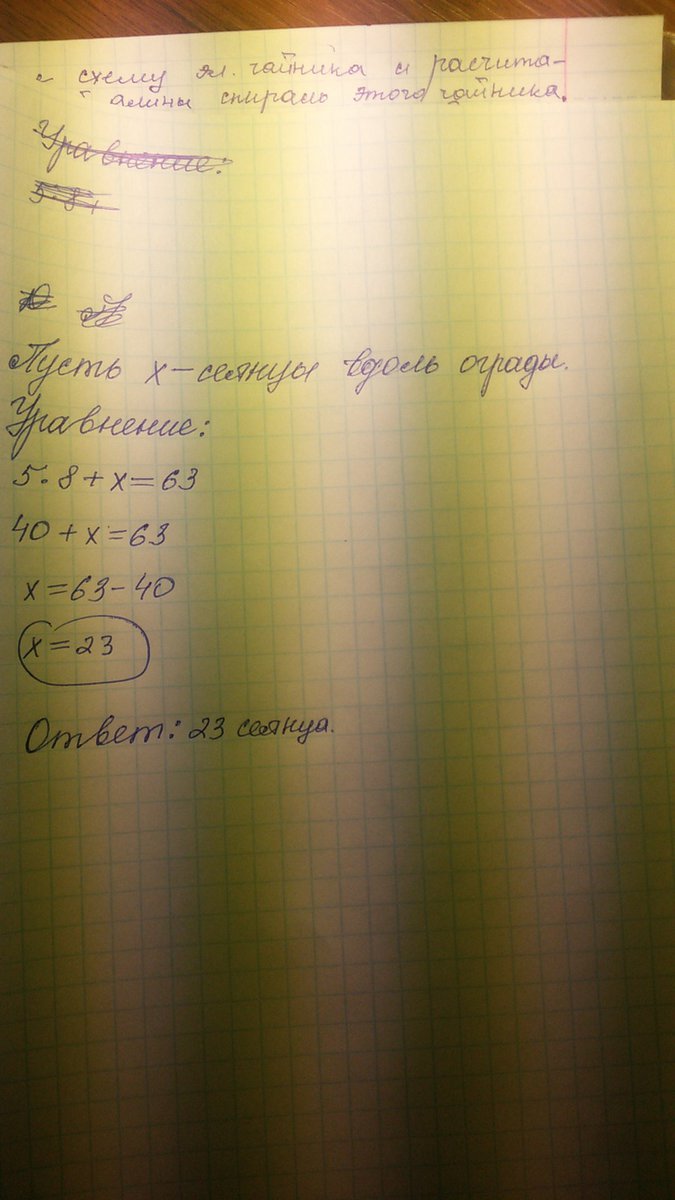 схему эл. чайника и расчита-
длины спираль этого чайника.
Уравнение:
5·8+
Пусть х – сеянцы вдоль ограды.
Уравнение:
5·8+х=63
40+х=63
х=63-40
х=23
Ответ: 23 сеянца.